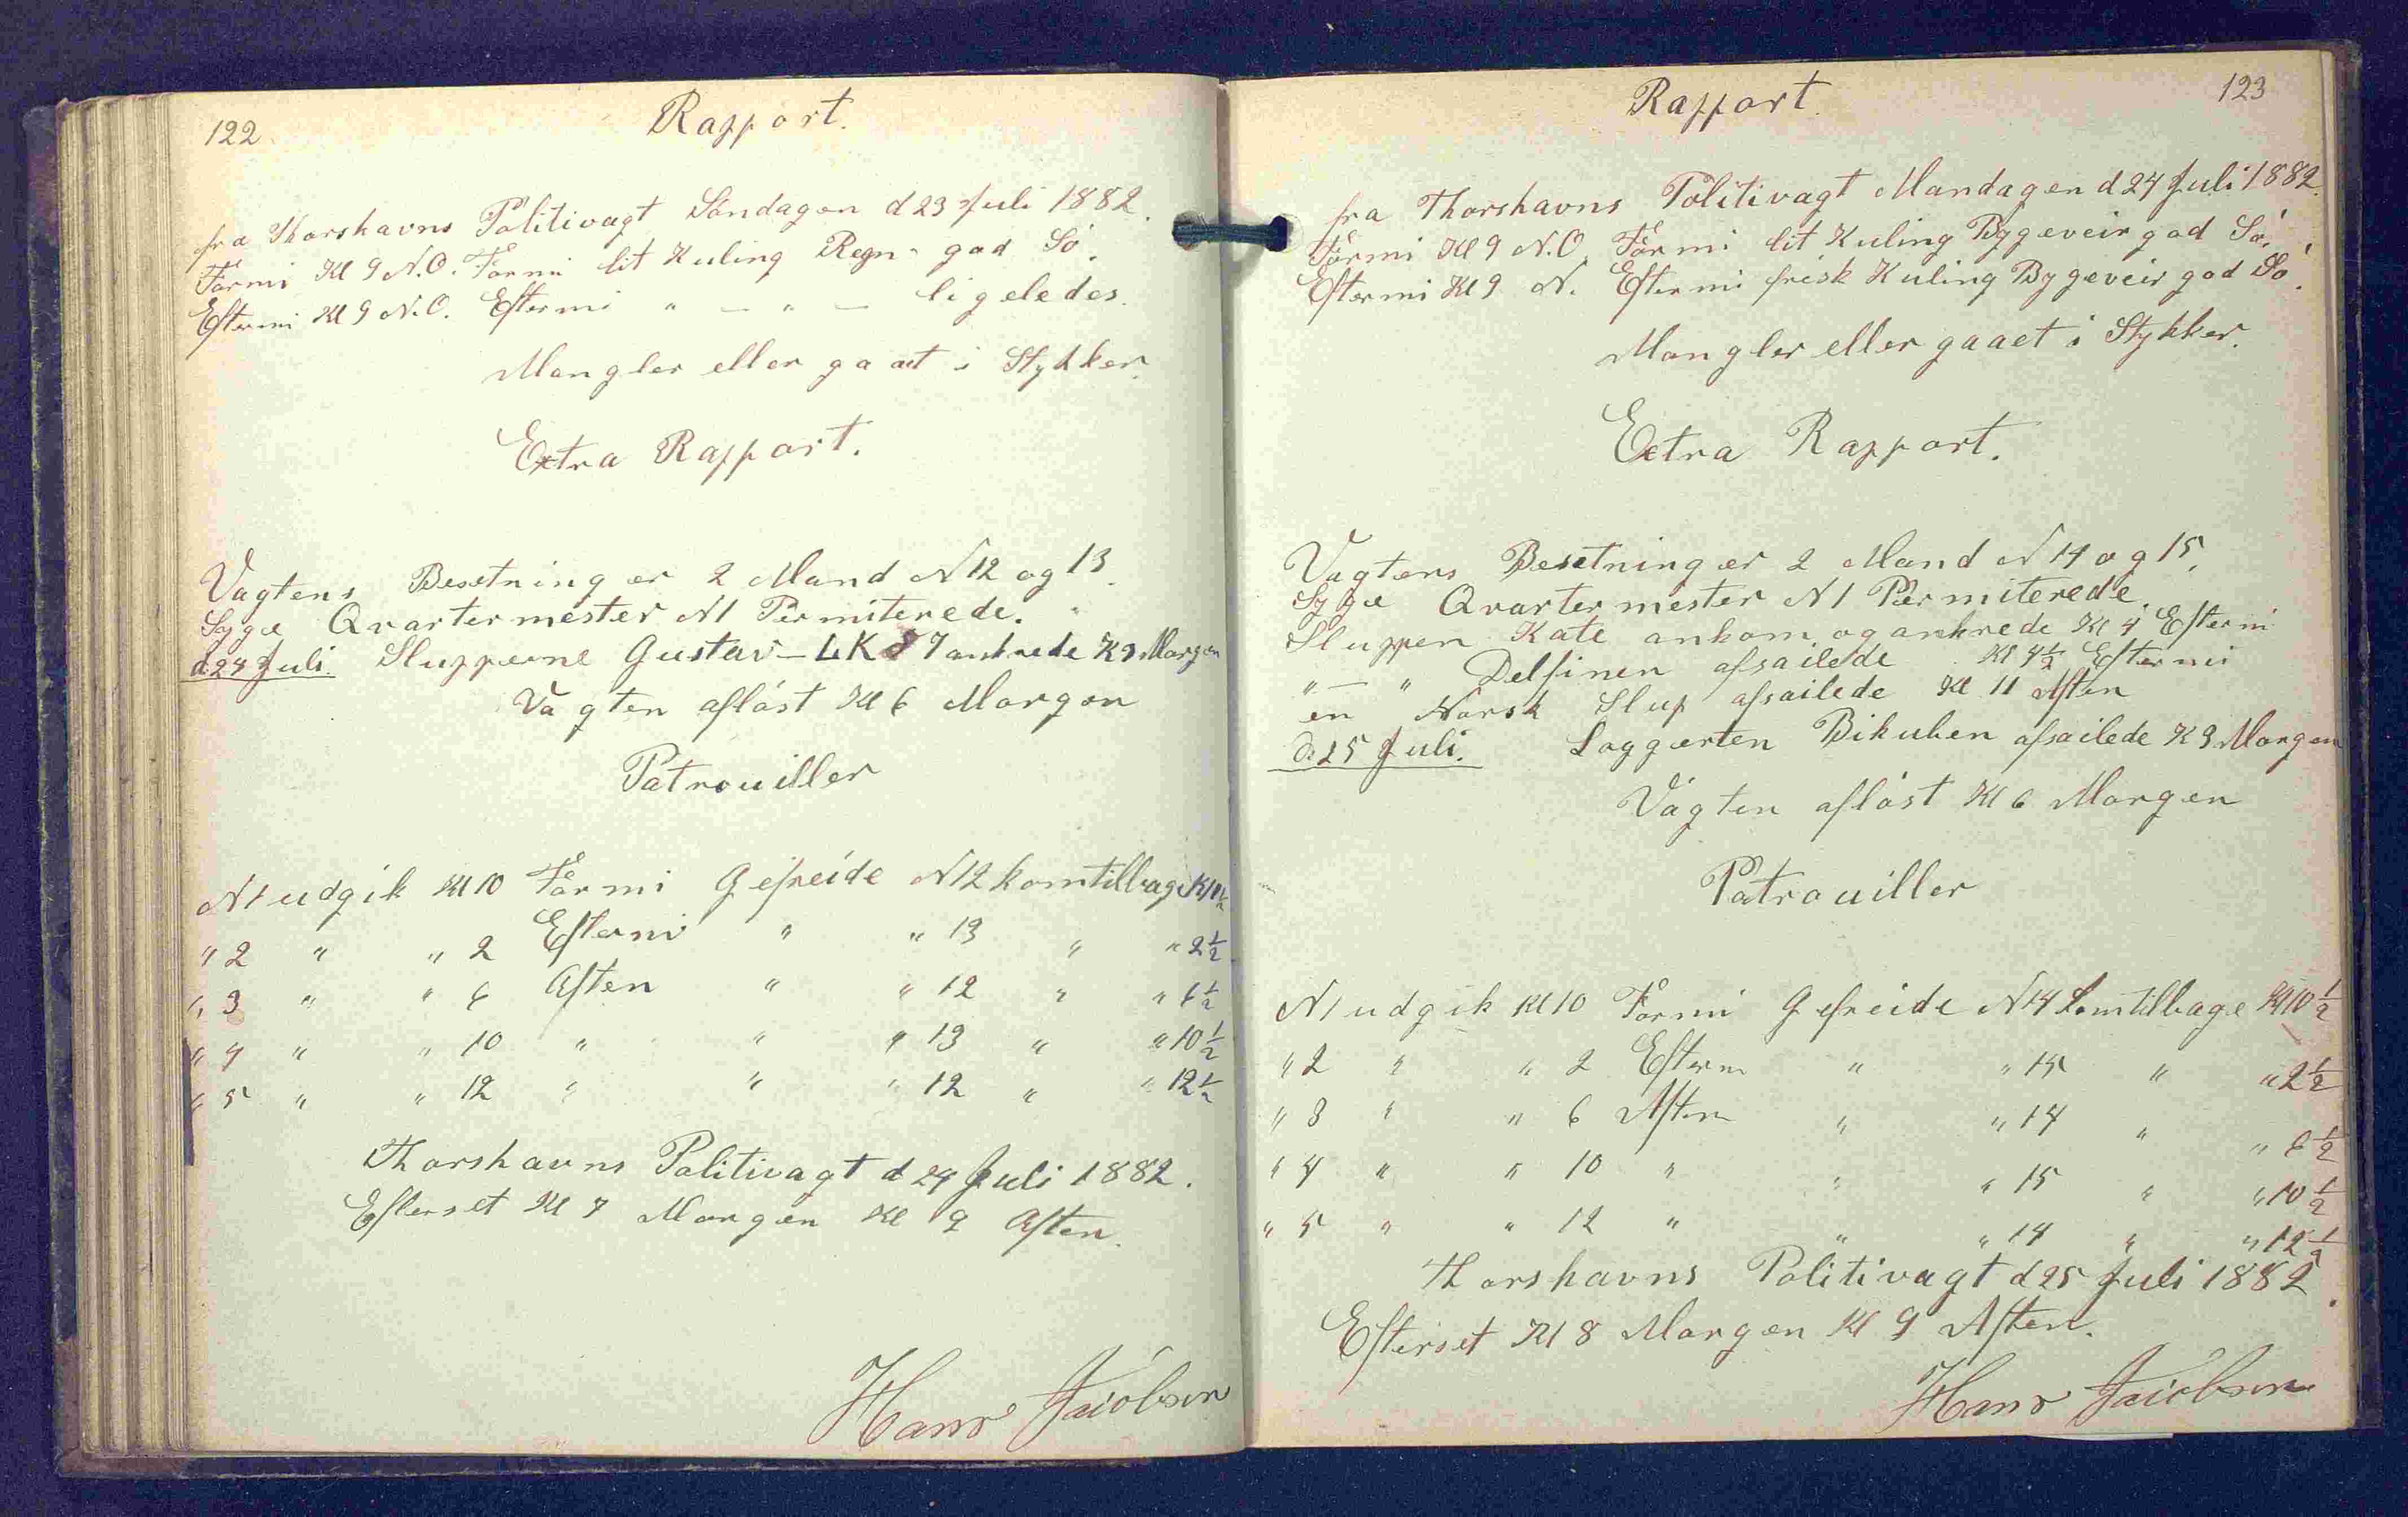 122
Rapport.
fra Thorshavns Politivagt Söndagen d 23 Juli 1882.
Formi Kl 9 N.O. Formi lit Kuling Regn- god Sö.
Eftermi Kl 9 N.O. Eftermi " — " — ligeledes.
Mangler eller gaaet i Stykker.
Extra Rapport.
Vagtens Besetning er 2 Mand N 12 og 13.
Syge Qvartermester N 1 Permiterede. "
d. 24 Juli. Slupperne Gustav — ankrede K 3 Morgen
Vagten aflöst Kl 6 Morgen
Patrouiller
N 1 udgik Kl 10 Formi Gefreide N 12 kom tilbage Kl 10½
" 2 " " 2 Eftermi " " 13 " " 2½
" 3 " " 6 Aften " " 12 " " 6½
" 4 " " 10 " " " 13 " " 10½
" 5 " " 12 " " " 12 " " 12½
Thorshavns Politivagt d 24 Juli 1882.
Efterset Kl 7 Morgen Kl 9 Aften.
Hans Jacobsen
123
Rapport.
fra Thorshavns Politivagt Mandagen d 24 Juli 1882.
Formi Kl 9 N.O. Formi lit Kuling Bygeveir god Sö.
Eftermi Kl 9 N. Eftermi frisk Kuling Bygeveir god Sö.
Mangler eller gaaet i Stykker.
Extra Rapport.
Vagtens Besetning er 2 Mand N 14 og 15.
Syge Qvartermester N 1 Permiterede.
Sluppen Kate ankom og ankrede Kl 4 Eftermi
" — " Delfinen afsailede Kl 4½ Eftermi
en Norsk Slup afsailede Kl 11 Aften
d. 25 Juli. Loggerten Bikuben afsailede K 3 Morgen
Vagten aflöst Kl 6 Morgen
Patrouiller
N 1 udgik Kl 10 Formi Gefreide N 14 komtilbage Kl 10½
" 2 " " 2 Efterm " " 15 " " 2½
" 3 " " 6 Aften " " 14 " " 6½
" 4 " " 10 " " " 15 " " 10½
" 5 " " 12 " " " 14 " " 12½
Thorshavns Politivagt d 25 Juli 1882.
Efterset Kl 8 Morgen Kl 9 Aften.
Hans Jacobsen